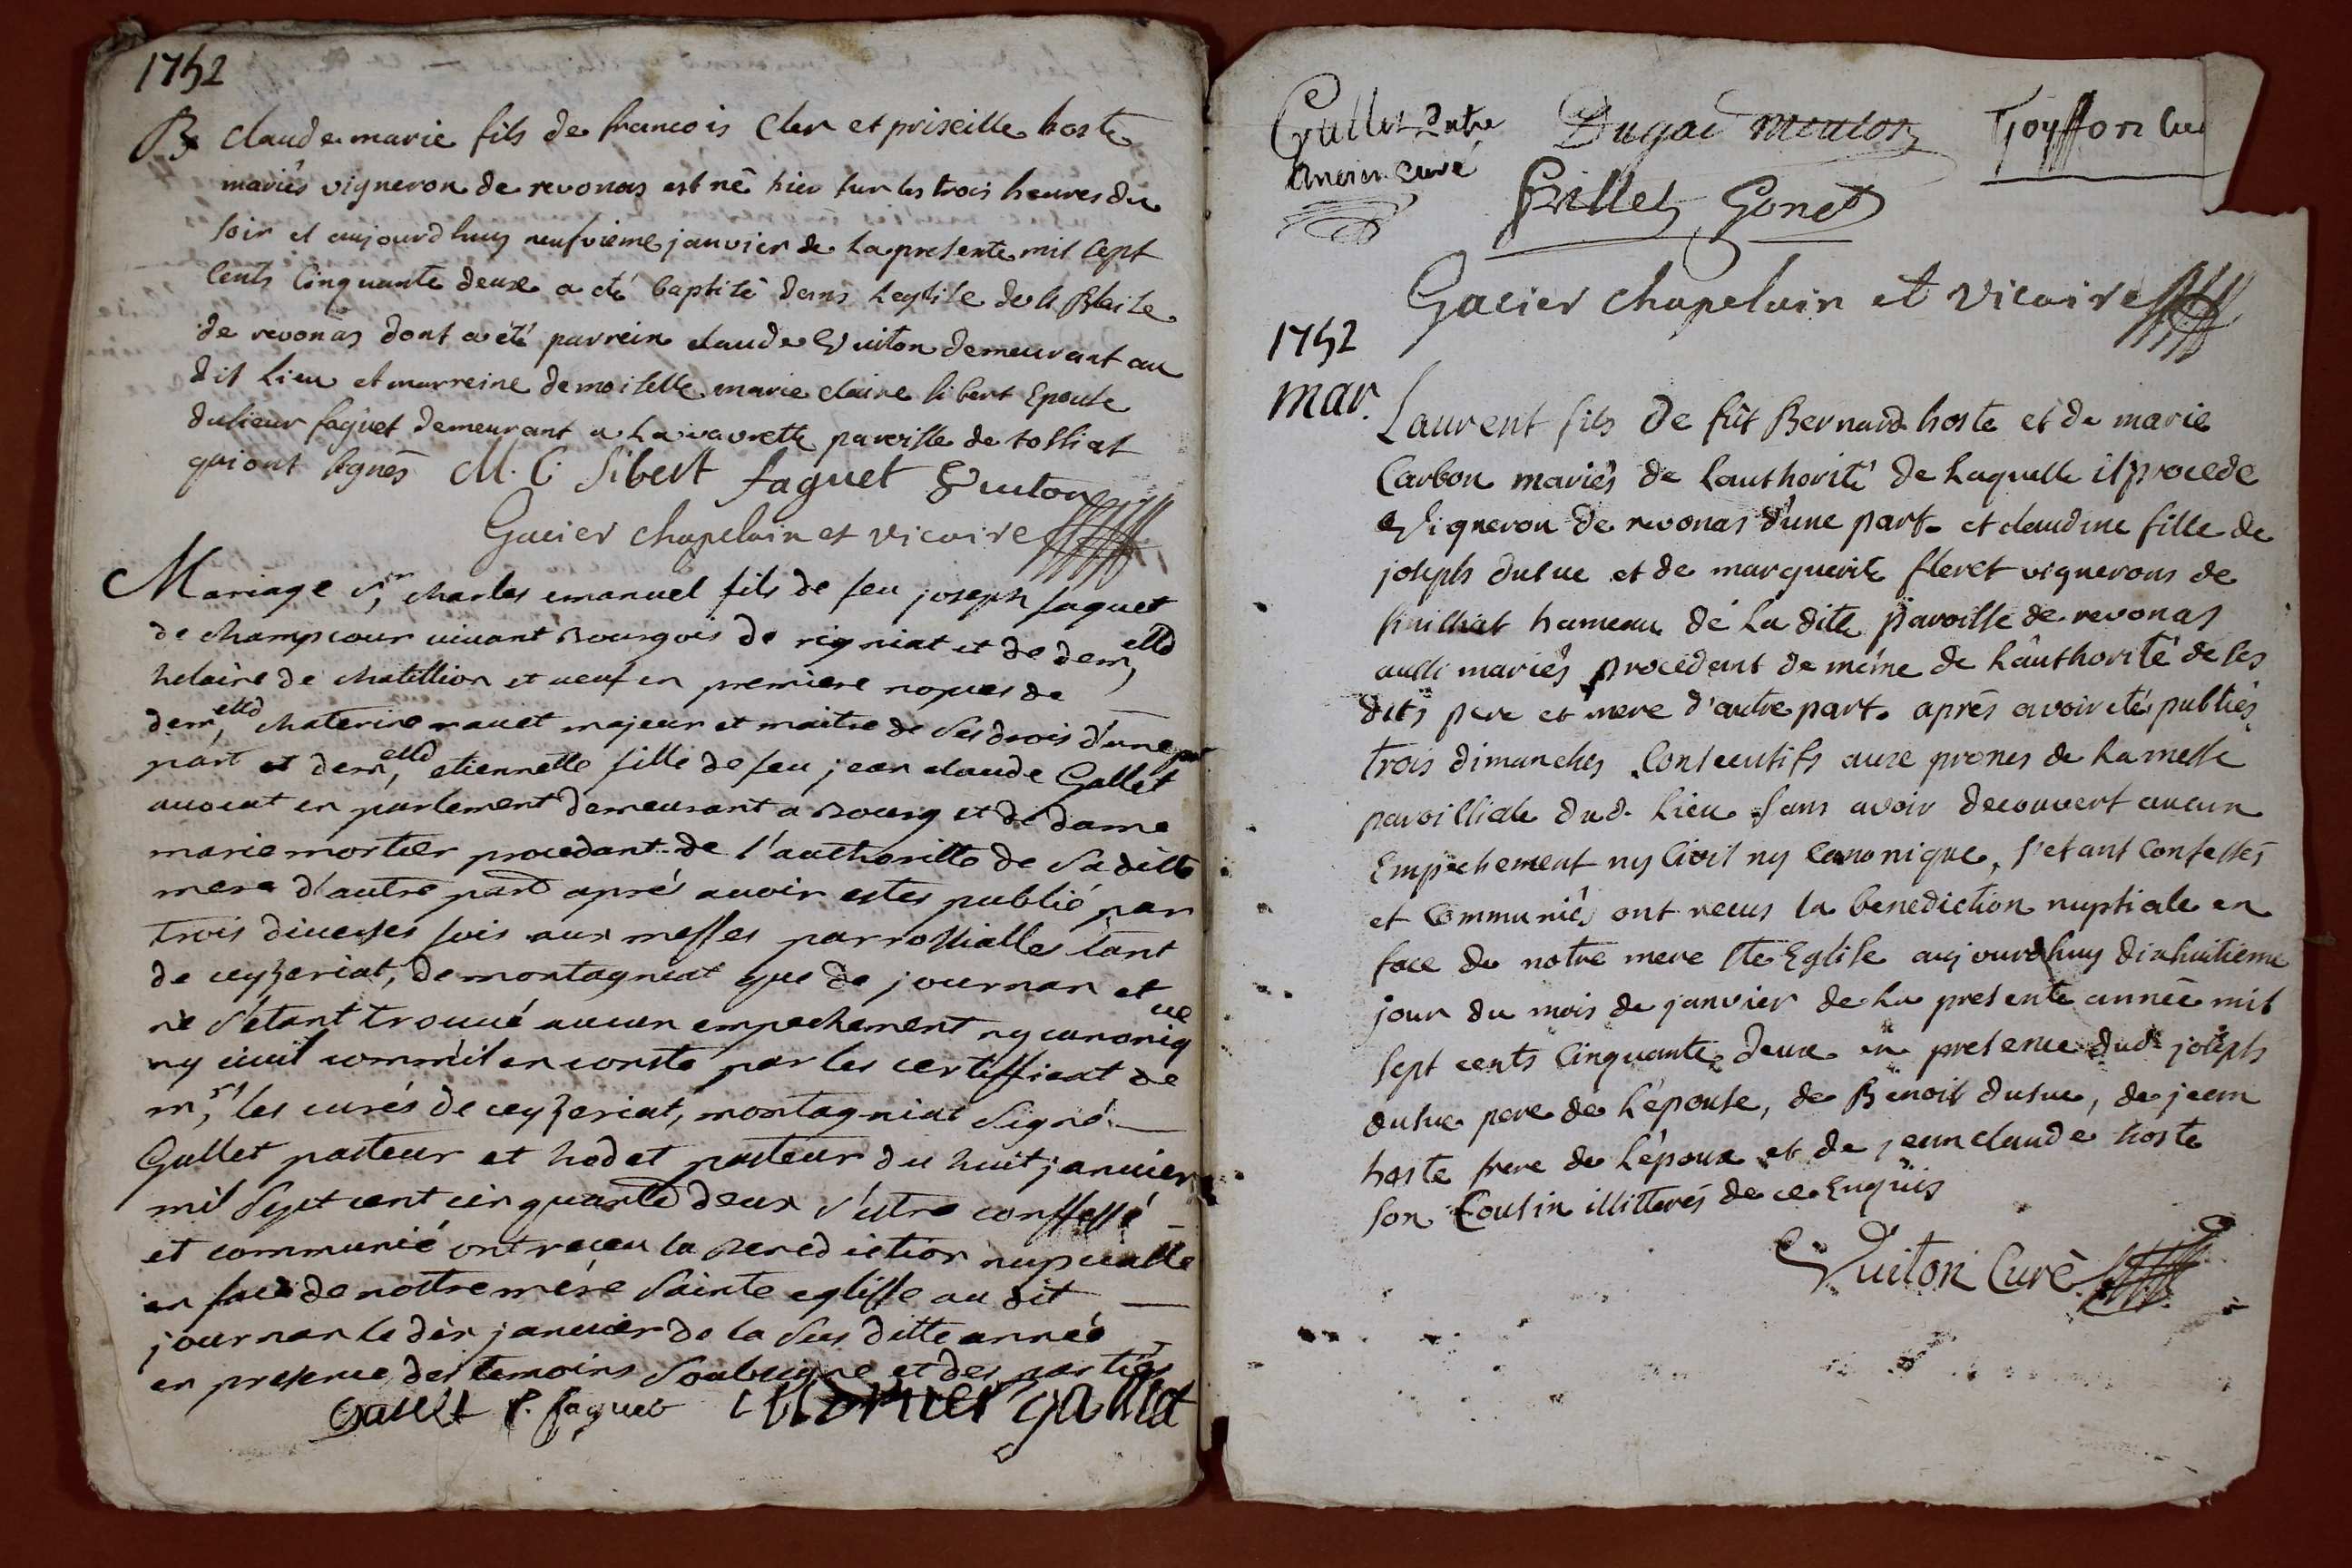 1752
B claude marie fils de francois Cler et priseille hoste
mariés vigneron de revonas est né hier sur les trois heures du
soir et aujourdhuy neufvieme janvier de la presente mil sept
cents cinquante deux a eté baptisé dans l'eglise de st Blaise
de revonas dont a eté parrein claude Vuiton demeurant au
dit lieu et marreine demoiselle marie claire sibert Epouse
du sieur faguet demeurant a la vavrette paroisse de tossiat
qui ont signés M. C. Sibert faguet Vuiton
Gacier chapelain et vicaire
Mariage sr, charles emanuel fils de feu joseph faguet
de champcour vivant Bourgois de rigniat et de demelle,
helaire de chatillion et veuf en premiere nopces de
demelle, chaterine ravet majeur et maitre de ses drois d'une
part et demelle, etiennette fille de feu jean claude Gallet
avocat en parlement demeurant a Bourg et de dame
marie mortier procedant de l'authoritte de sa ditte
mere d'autre part apré avoir estes publié par
trois diverses fois aux messes parrossialles tant
de ceyzeriat, de montagniat que de journan et
ne s'étant trouvé aucun empechement ny canonique
ny civil comm'il en conste par les certifficat de
mrs, les curés de ceyzeriat, montagniat signé
Gallet pasteur et hodet pasteur du huit janvier
mil sept cent cinquante deux s'estre confessé
et communié ont receu la Benediction nupcialle
en face de nottre mére sainte eglisse au dit
journan le dix janvier de la sus ditte année
en presence des temoins soubsigne et des parties
Gallet f. faguet Mortier gallet
Gallet Prtre Dugad mouton Goyffon Cu
Ancien curé Grillet Gonet
Gacier chapelain et vicaire
1752
mar.
Laurent fils de fût Bernard hoste et de marie
Carbon mariés de l'authorité de laquelle il procede
Vigneron de revonas d'une part. et claudine fille de
joseph dusuc et de marguerite fleret vignerons de
hameau de la dite paroisse de revonas
aussi mariés procedant de méme de l'authorité de ses
dits pere et mere d'autre part. aprés avoir eté publiés
trois dimanches consecutifs aux prones de la messe
paroissiale dud. lieu sans avoir decouvert aucun
Empéchement ny civil ny canonique, s'etant confessés
et communiés ont recus la benediction nuptiale en
face de notre mere ste Eglise aujourdhuy dixhuitieme
jour du mois de janvier de la presente année mil
sept cents cinquante deux en presence dud. joseph
dusuc pere de l'épouse, de Benoit dusuc, de jean
hoste frere de l'époux et de jean claude hoste
son Cousin illitterés de ce Enquis
Vuiton Curé